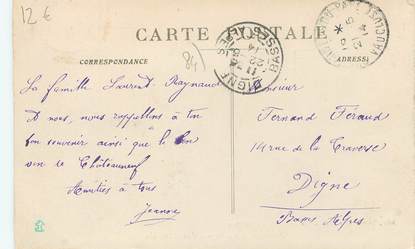 12 €
CARTE POSTALE
CORRESPONDANCE
ADRESSE
84
DIGNE
BASSES ALPES
22
14
VAUCLUSE
La famille Laurent Raynaud
et nous, nous rappellons à ton
bon souvenir ainsi que le bon
vin de Châteauneuf
Amitiés à tous
Jeanne
Monsieur
Fernand Féraud
14 rue de la Traverse
Digne
Basses Alpes